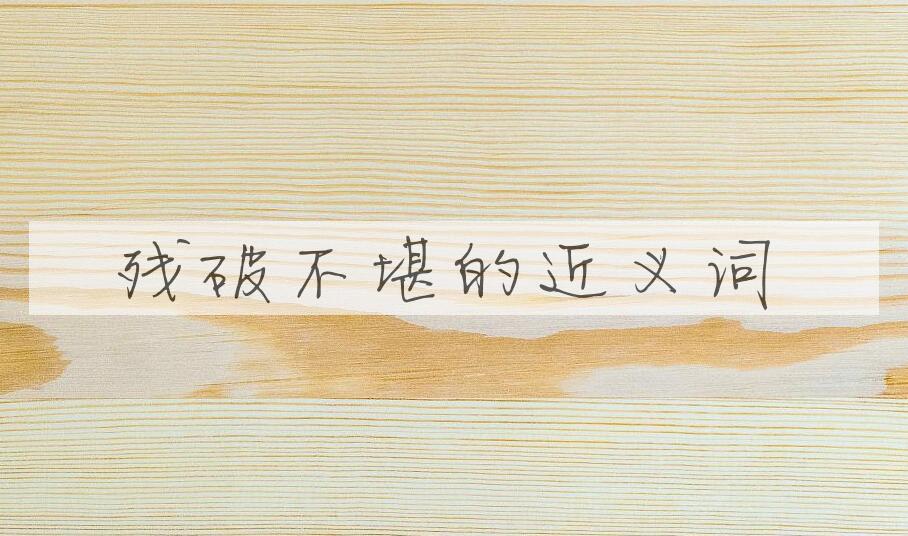 残破不堪的近义词